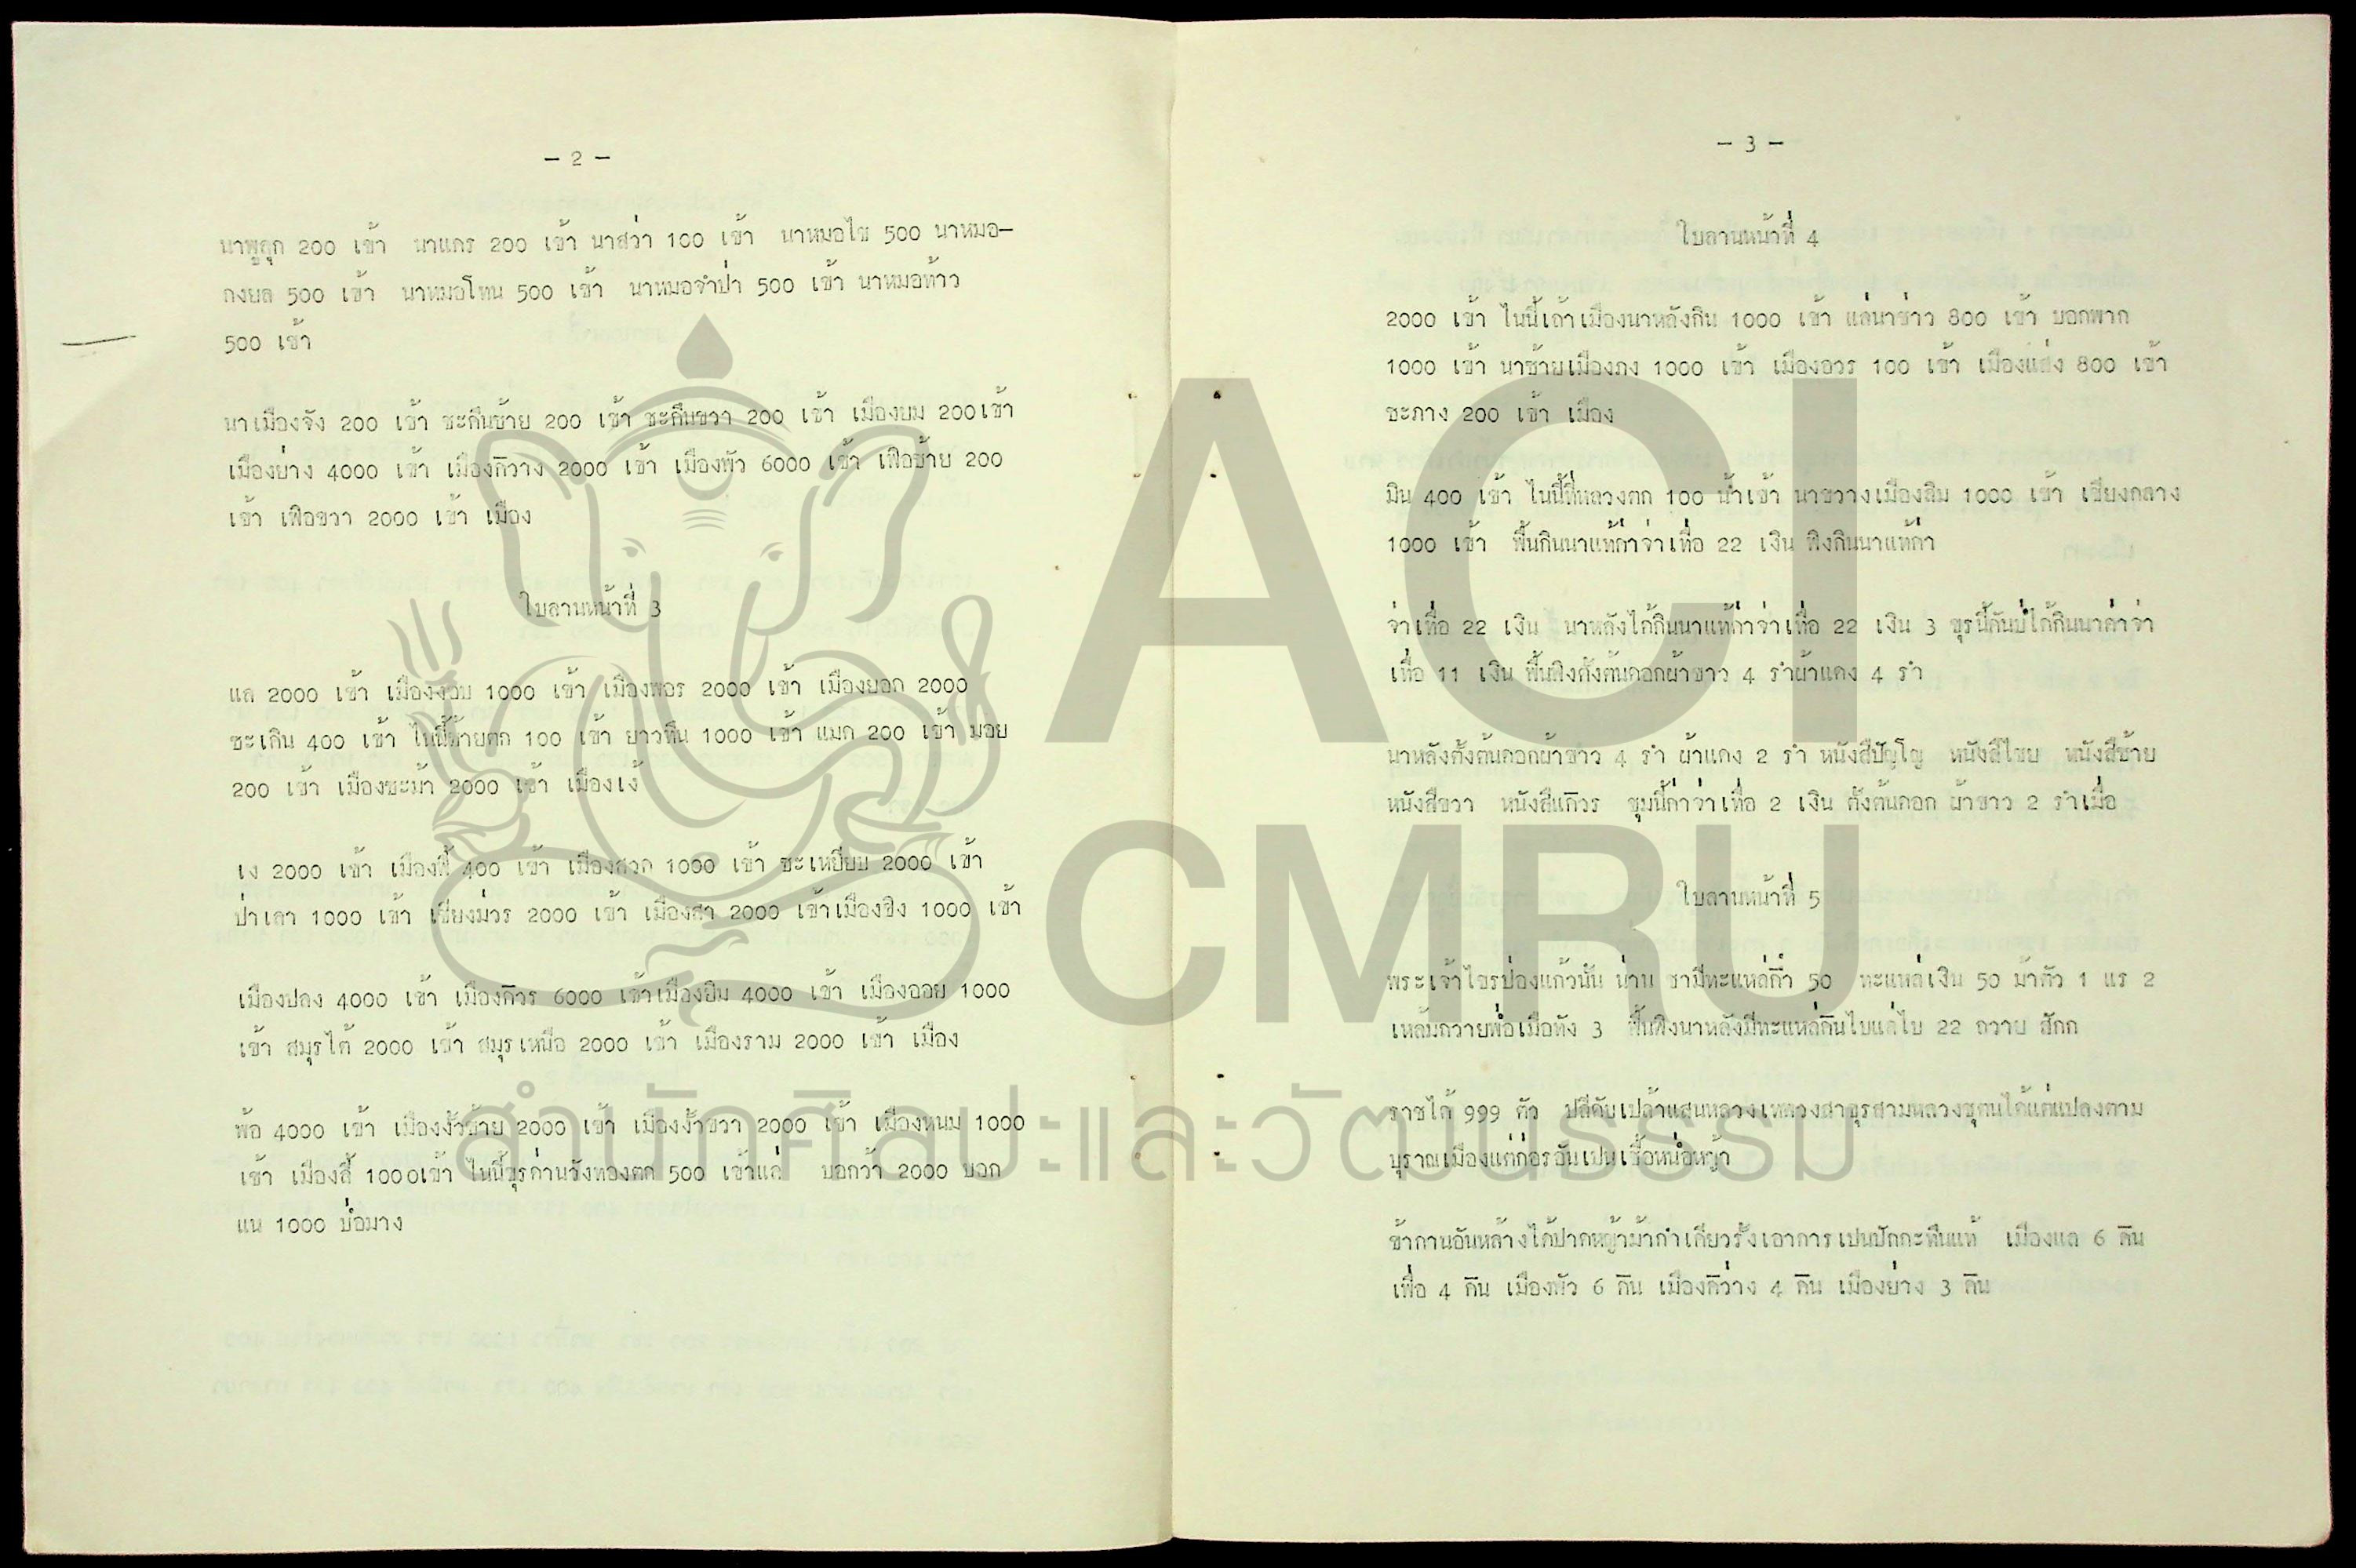 - 2 -
นาพูลุก 200 เข้า นาแกร 200 เข้า นาสว่า 100 เข้า นาหมอไข 500 นาหมอ-
กงยล 500 เข้า นาหมอโทน 500 เข้า นาหมอจำป่า 500 เข้า นาหมอท้าว
500 เข้า
นาเมืองจัง 200 เข้า ชะกืนซ้าย 200 เข้า ชะกืนขวา 200 เข้า เมืองบม 200เข้า
เมืองย่าง 4000 เข้า เมืองกิวาง 2000 เข้า เมืองพัว 6000 เข้า เฟือซ้าย 200
เข้า เฟือขวา 2000 เข้า เมือง
ใบลานหน้าที่ 3
แล 2000 เข้า เมืองงอบ 1000 เข้า เมืองพอร 2000 เข้า เมืองยอก 2000
ชะเกิน 400 เข้า ไนนี้ซ้ายตก 100 เข้า ยาวหืน 1000 เข้า แมด 200 เข้า มอย
200 เข้า เมืองชะม้า 2000 เข้า เมืองเง้
เง 2000 เข้า เมืองลี้ 400 เข้า เมืองสวก 1000 เข้า ชะเหยียบ 2000 เข้า
ป่าเลา 1000 เข้า เชียงม่วร 2000 เข้า เมืองสา 2000 เข้าเมืองขิง 1000 เข้า
เมืองปลง 4000 เข้า เมืองกิวร 6000 เข้าเมืองยิม 4000 เข้า เมืองออย 1000
เข้า สมุรไต้ 2000 เข้า สมุรเหนือ 2000 เข้า เมืองราม 2000 เข้า เมือง
พ้อ 4000 เข้า เมืองงั้วซ้าย 2000 เข้า เมืองงั้วขวา 2000 เข้า เมืองหนม 1000
เข้า เมืองลี้ 1000เข้า ไนนี้ขุรด่านวังทองตก 500 เข้าแล่ บอกว้า 2000 บอก
แน 1000 บ่อมาง
- 3 -
ใบลานหน้าที่ 4
2000 เข้า ไนนี้เถ้าเมืองนาหลังกิน 1000 เข้า แล่นาข่าว 800 เข้า บอกพาก
1000 เข้า นาซ้ายเมืองภง 1000 เข้า เมืองอวร 100 เข้า เมืองแส่ง 800 เข้า
ชะภาง 200 เข้า เมือง
มิน 400 เข้า ไนนี้ที่หลวงตก 100 น้ำเข้า นาขวางเมืองลิม 1000 เข้า เชียงกลาง
1000 เข้า พื้นกินนาแท้ก่าจ่าเทื่อ 22 เงิน พิงกินนาแท้ก่า
จ่าเทื่อ 22 เงิน นาหลังได้กินนาแท้ก่าจ่าเทื่อ 22 เงิน 3 ขุรนี้กันบ่ได้กินนาค่าจ่า
เทื่อ 11 เงิน พื้นพิงตั้งต้นดอกผ้าขาว 4 รำผ้าแดง 4 รำ
นาหลังตั้งต้นดอกผ้าขาว 4 รำ ผ้าแดง 2 รำ หนังสีปัญโญ หนังสีไชย หนังสีซ้าย
หนังสีขวา หนังสีแกิวร ขุมนี้ก่าจ่าเทื่อ 2 เงิน ตั้งต้นดอก ผ้าขาว 2 รำเมื่อ
ใบลานหน้าที่ 5
พระเจ้าไขรป่องแก้วนัน น่าน ชามีทะแหล่กิ่ำ 50 ทะแหล่เงิน 50 ม้าตัว 1 แร 2
เหล้มถวายพ่อเมือทัง 3 พื้นพิงนาหลังมีทะแหล่กินไบแต่ไบ 22 ถวาย สักก
ราชได้ 999 ตัว ปลีดับเปล้าแสนหลวงเหควงสาขุรสามหลวงชุตนได้แต่แปลงตาม
บุราณเมืองแต่ก่อรอันเปนเชื้อหน่อหญ้า
ข้าดานอันหล้างได้ปาดหญ้าม้ากำเดียวรั้งเอาการเปนปักกะตืนแท้ เมืองแล 6 กืน
เฟื่อ 4 กืน เมืองพัว 6 กืน เมืองกิว่าง 4 กืน เมืองย่าง 3 กืน
ACI
CMRU
สำนักศิลปะและวัฒนธรรม